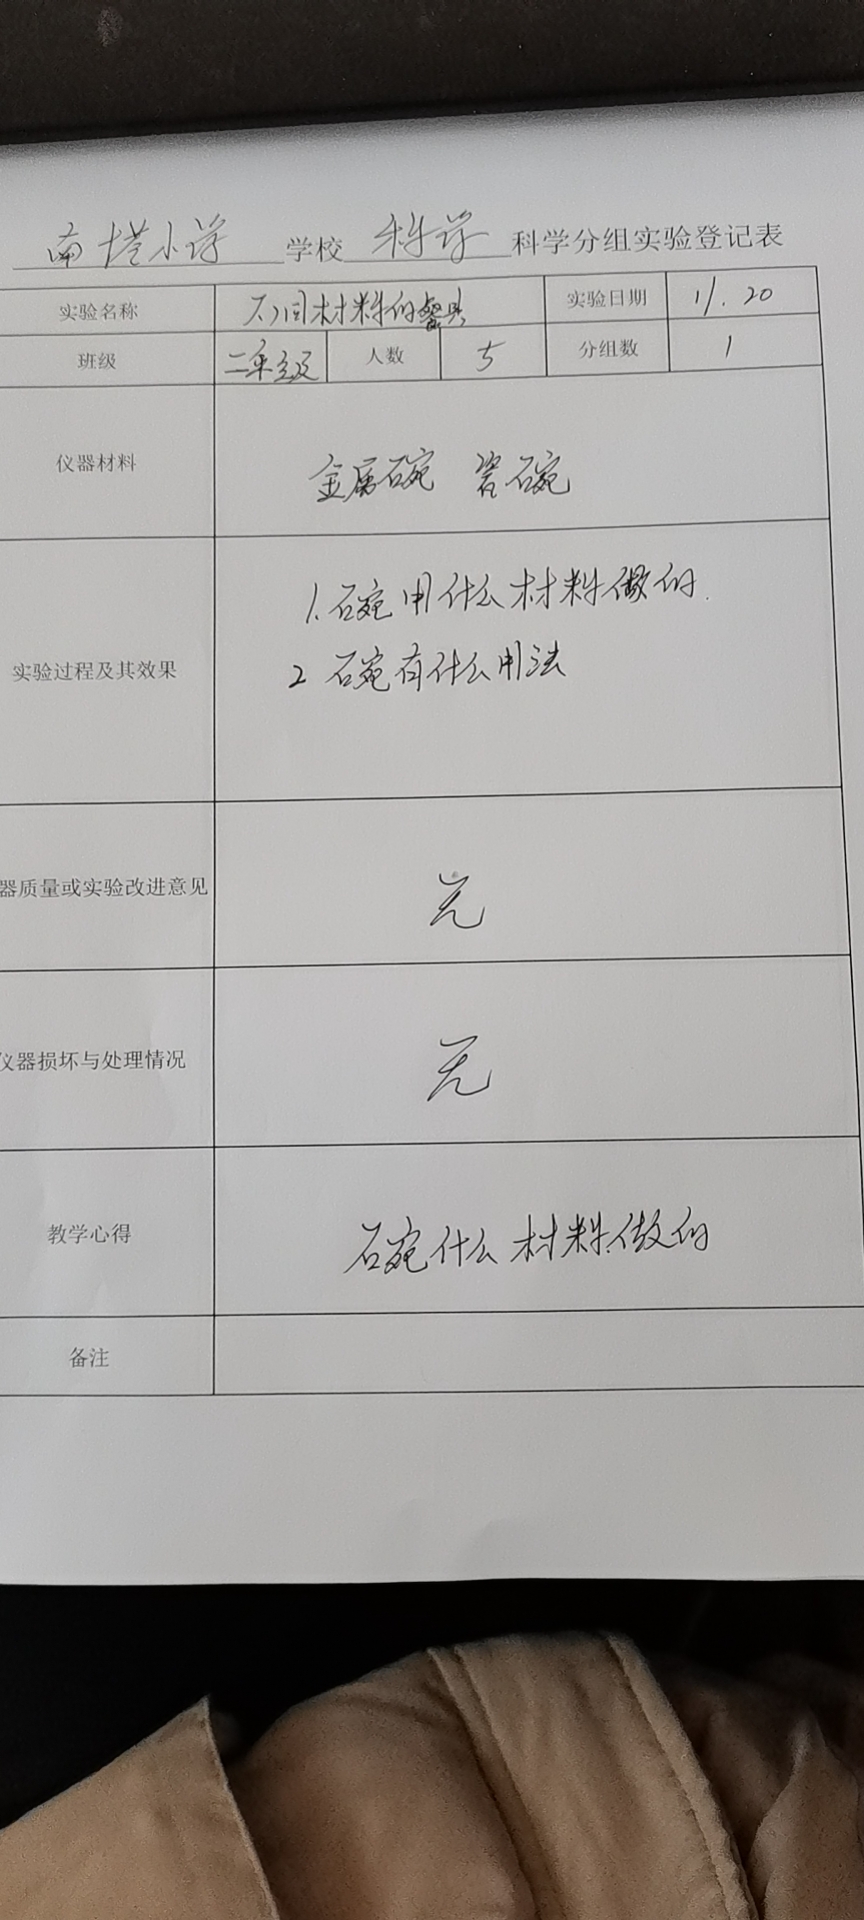 南塔小学 学校 科学 科学分组实验登记表
实验名称 不同材料的餐具 实验日期 11.20
班级 二年级 人数 5 分组数 1
仪器材料 金属碗 瓷碗
1.碗用什么材料做的.
实验过程及其效果
2 碗有什么用法
器质量或实验改进意见 无
仪器损坏与处理情况 无
教学心得 碗什么材料做的
备注